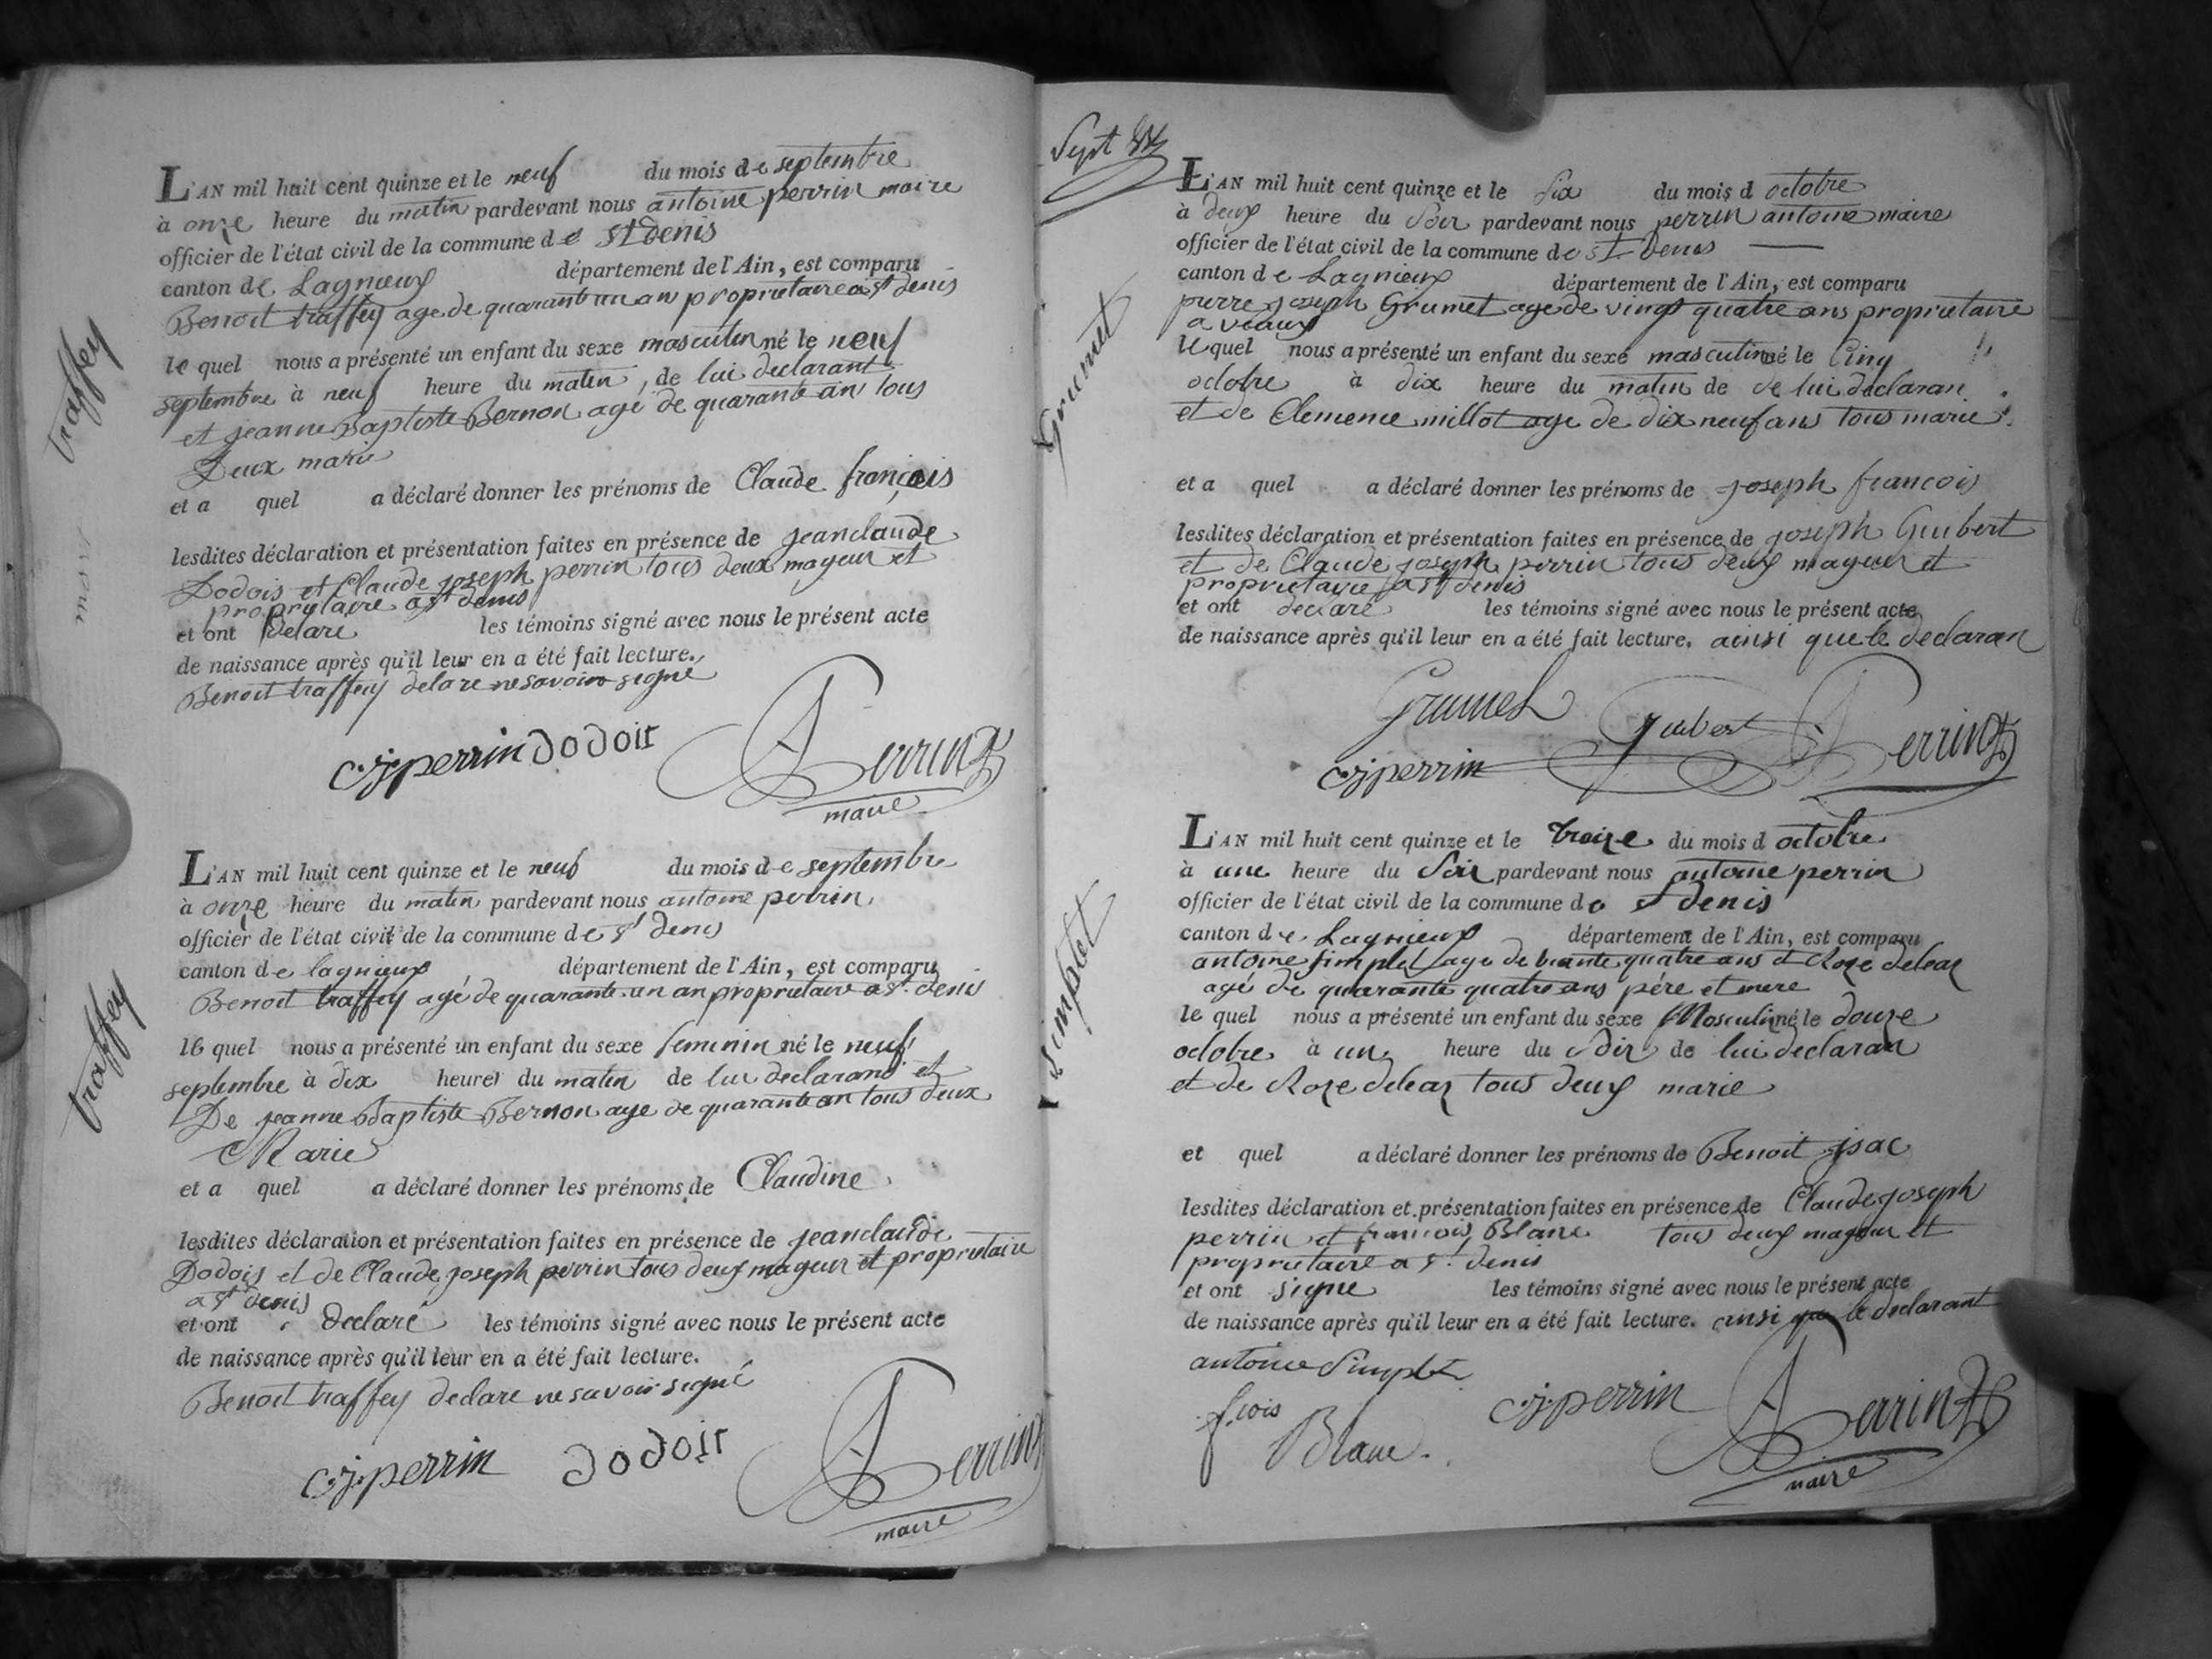 traffey
L'AN mil huit cent quinze et le neuf du mois de septembre
à onze heure du matin pardevant nous antoine perrin maire
officier de l'état civil de la commune de St Denis
canton de Lagnieux département de l'Ain, est comparu
Benoit traffey age de quarante un ans proprietaire a st denis
le quel nous a présenté un enfant du sexe masculin né le neuf
septembre à neuf heure du matin, de lui declarant
et jeanne Baptiste Bernon agé de quarante an tous
Deux marie
et a quel a déclaré donner les prénoms de Claude françois
lesdites déclaration et présentation faites en présence de jeanclaude
Dodois et Claude joseph perrin tous deux mayeur et
proprytaire a st denis
et ont delare les témoins signé avec nous le présent acte
de naissance après qu'il leur en a été fait lecture.
Benoit traffey delare ne savoir signé
c.j.perrin dodoit APerrin
maire
traffey
L'AN mil huit cent quinze et le neuf du mois de septembre
à onze heure du matin pardevant nous antoine perrin
officier de l'état civil de la commune de st denis
canton de lagnieux département de l'Ain, est comparu
Benoit traffey agé de quarante un an proprietaire a st denis
le quel nous a présenté un enfant du sexe feminin né le neuf
septembre à dix heures du matin de lui declarant et
De jeanne Baptiste Bernon age de quarante an tous deux
Marie
et a quel a déclaré donner les prénoms de Claudine
lesdites déclaration et présentation faites en présence de jeanclaude
Dodois et de Claude joseph perrin tous deux mayeur et proprietaire
a st denis
et ont declaré les témoins signé avec nous le présent acte
de naissance après qu'il leur en a été fait lecture.
Benoit traffey declare ne savoir signé
c.j.perrin dodoit APerrin
maire
Sept
Grumet
L'AN mil huit cent quinze et le six du mois d octobre
à deux heure du soir pardevant nous perrin antoine maire
officier de l'état civil de la commune de st Denis
canton de Lagnieux département de l'Ain, est comparu
pierre joseph Grumet age de vingt quatre ans proprietaire
a veaux
le quel nous a présenté un enfant du sexe masculin né le cinq
octobre à dix heure du matin de de lui declaran
et de Clemence millot age de dix neuf ans tous marie
et a quel a déclaré donner les prénoms de joseph francois
lesdites déclaration et présentation faites en présence de joseph Guibert
et de Claude joseph perrin tous deux mayeur et
proprietaire a st denis
et ont declaré les témoins signé avec nous le présent acte
de naissance après qu'il leur en a été fait lecture. ainsi que le declaran
Grumet Guibert APerrin
c.j.perrin
simplet
L'AN mil huit cent quinze et le treize du mois d octobre
à une heure du soir pardevant nous antoine perrin
officier de l'état civil de la commune de st denis
canton de Lagnieux département de l'Ain, est comparu
antoine simplet age de trante quatre ans et Roze deleaz
agé de quarante quatre ans pére et mere
le quel nous a présenté un enfant du sexe Masculin né le douze
octobre à un heure du soir de lui declaran
et de Roze deleaz tous deux marie
et quel a déclaré donner les prénoms de Benoit jsac
lesdites déclaration et présentation faites en présence de Claude joseph
perrin et francois Blanc tous deux mayeur et
proprietaire a st denis
et ont signe les témoins signé avec nous le présent acte
de naissance après qu'il leur en a été fait lecture. ainsi que le declarant
antoine Simplet
c.j.perrin APerrin
fcois
Blanc
maire